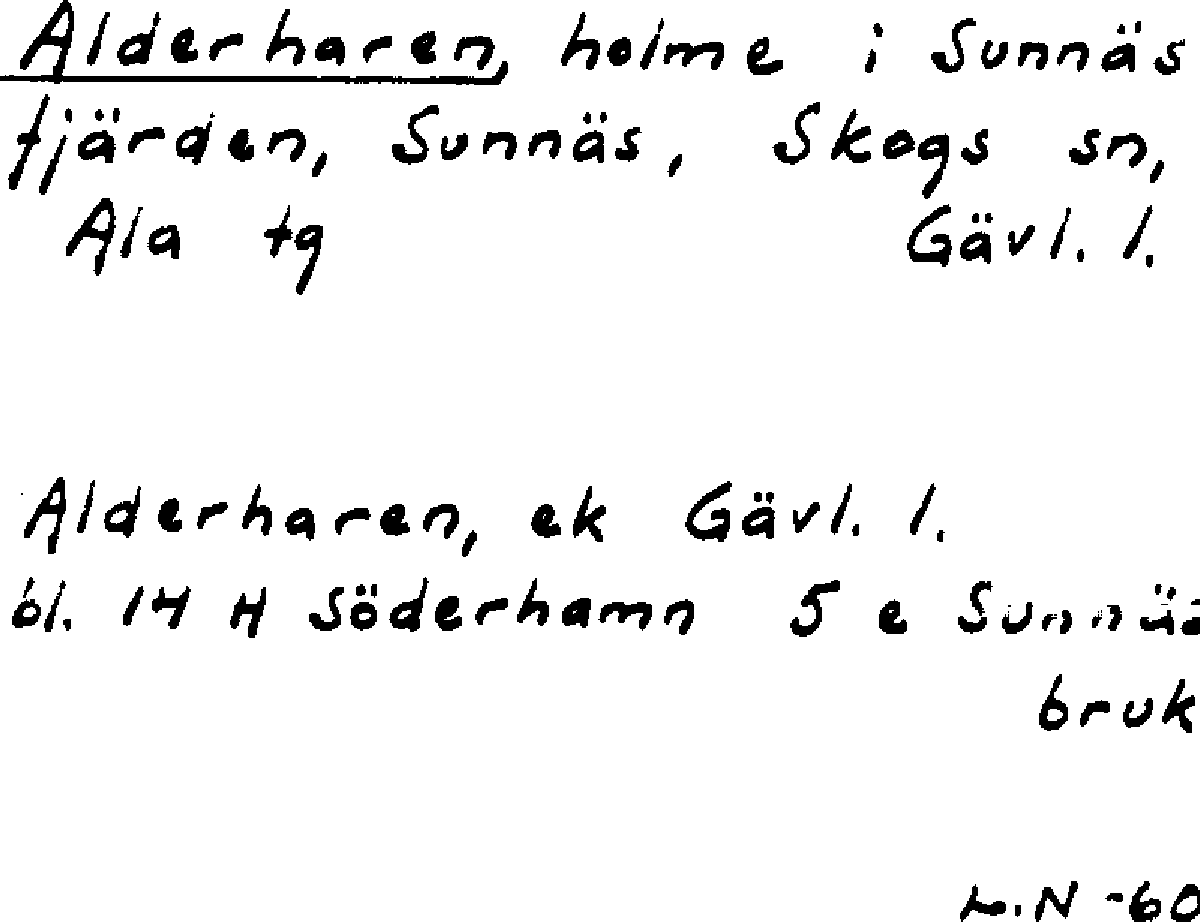 Alderharen, holme i Sunnäs
fjärden, Sunnäs, Skogs sn,
Ala tg Gävl. l.
Alderharen, ek Gävl. l.
bl. 14 H Söderhamn 5 e Sunnäs
bruk
L.N -60